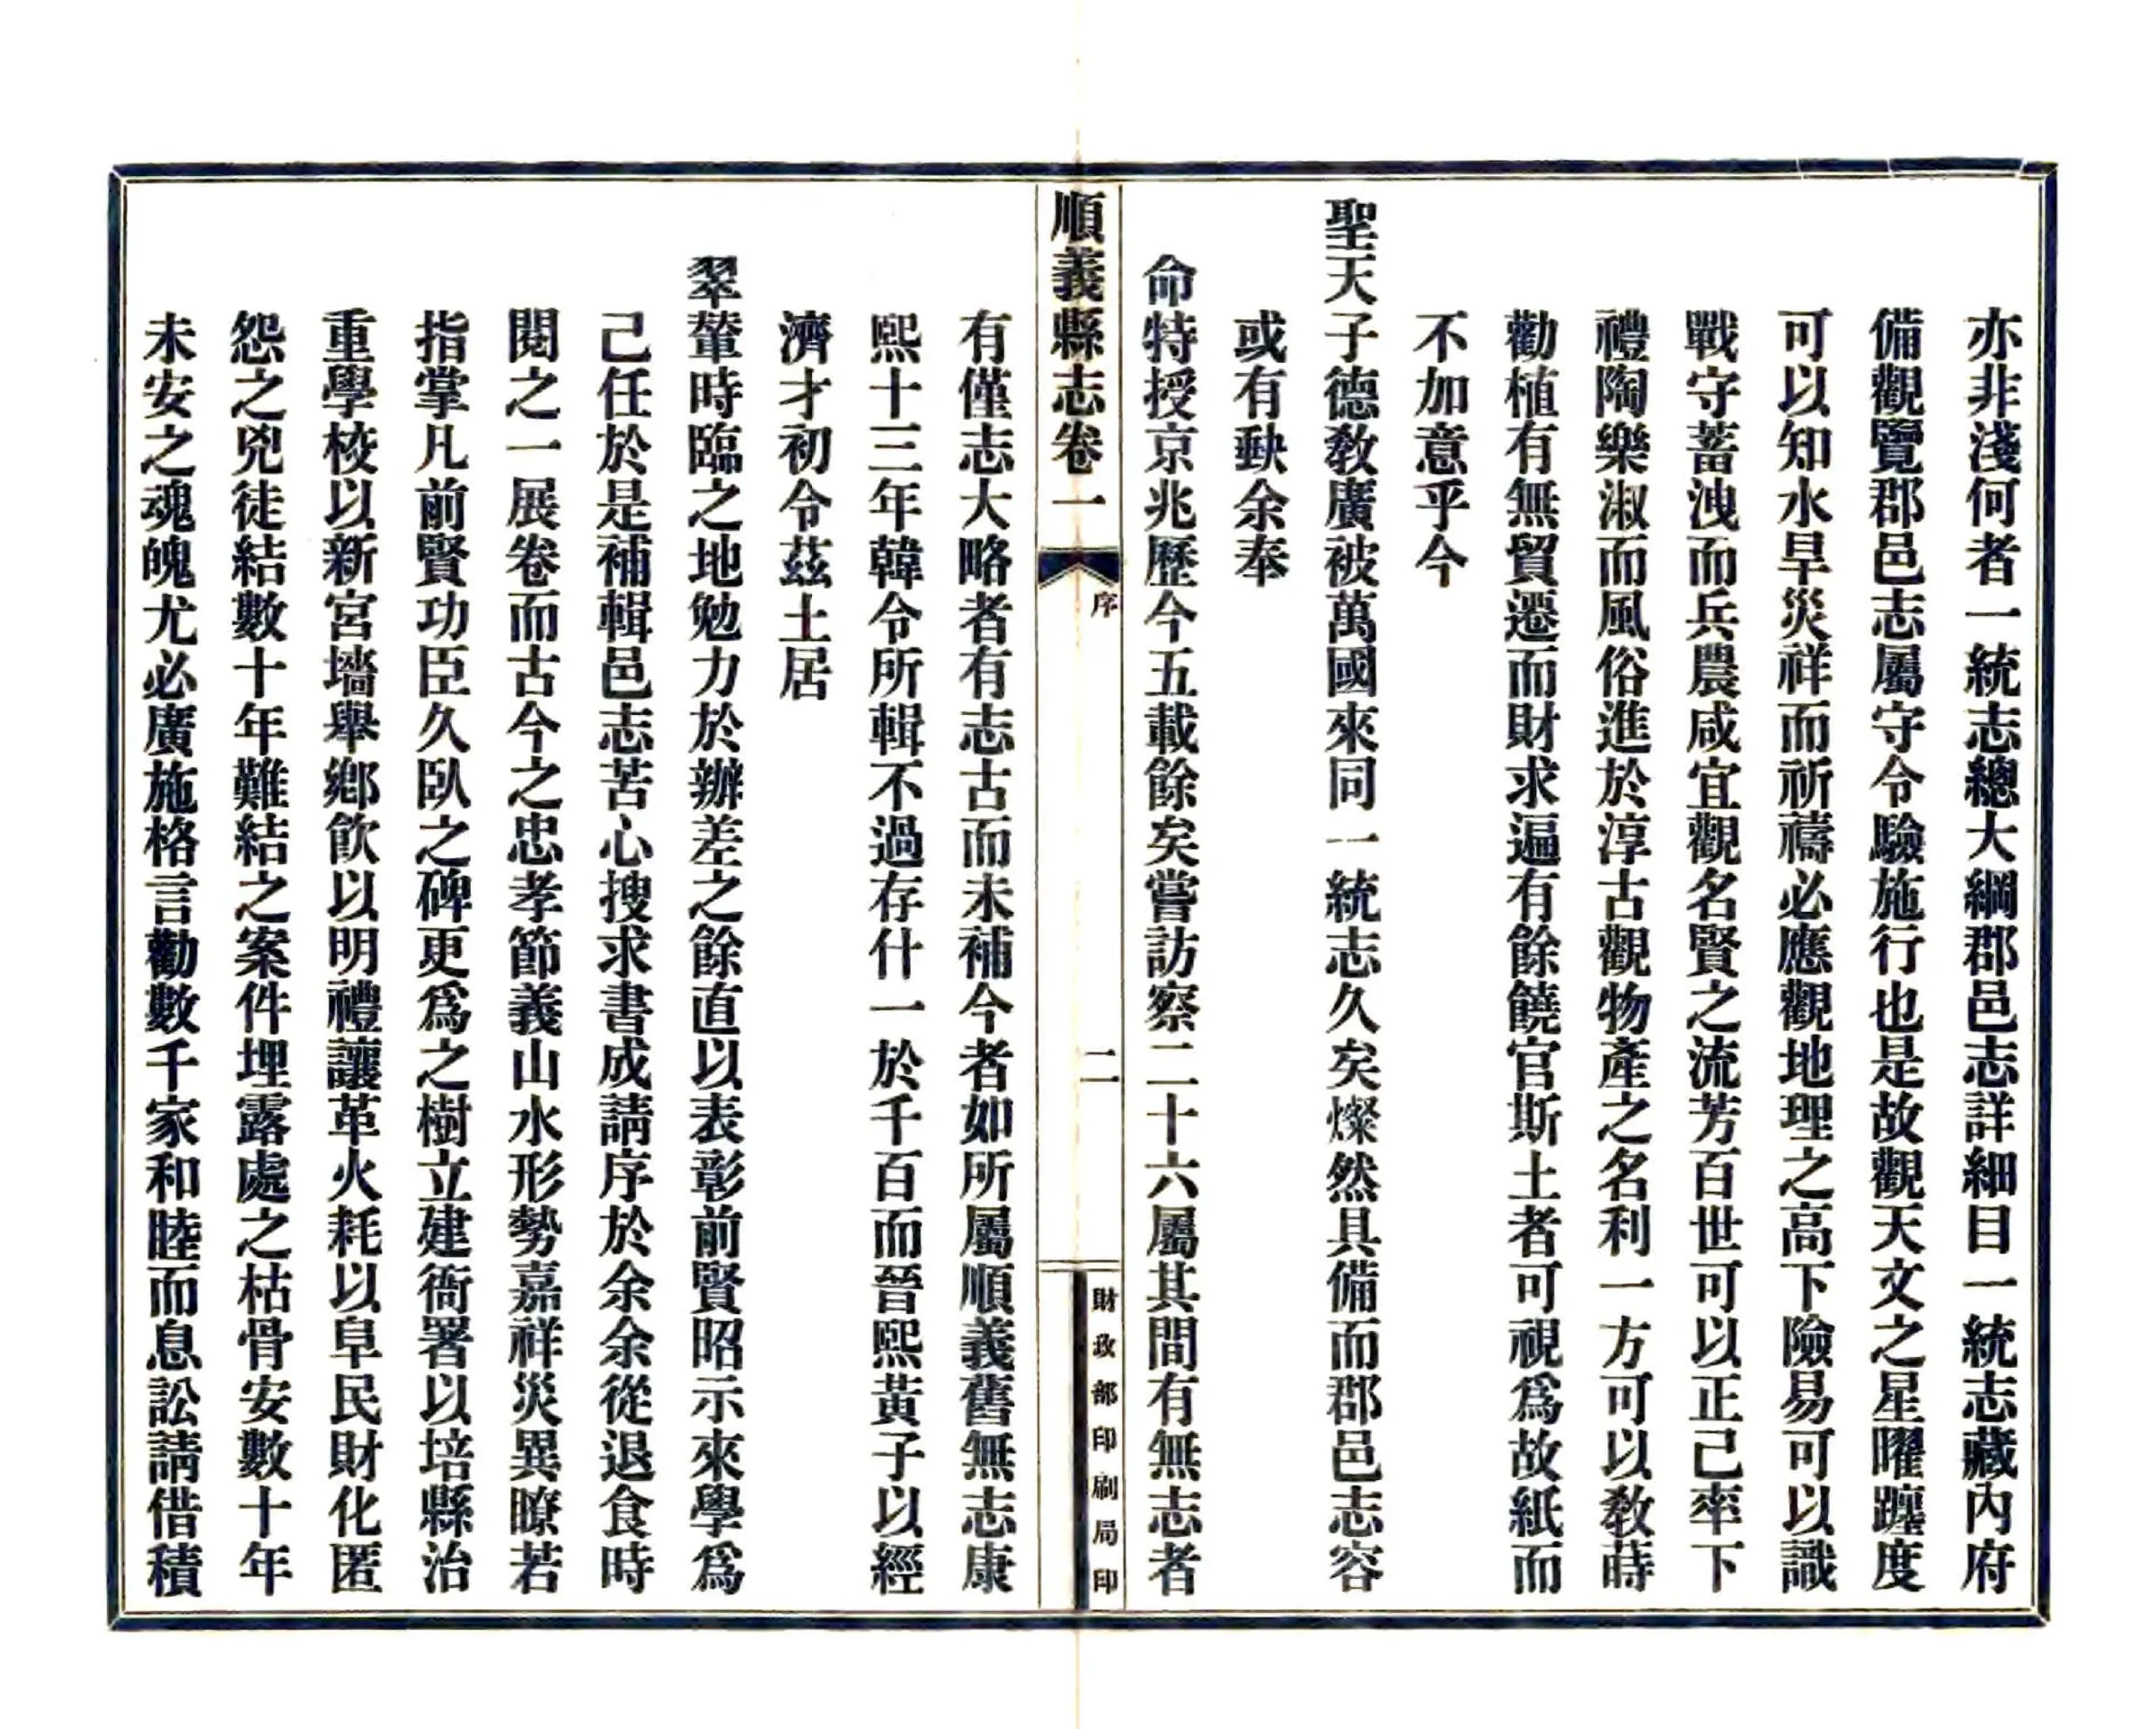 亦非淺何者一統志總大綱郡邑志詳細目一統志藏內府
備觀覽郡邑志屬守令驗施行也是故觀天文之星曜躔度
可以知水旱災祥而祈禱必應觀地理之高下險易可以識
戰守蓄洩而兵農咸宜觀名賢之流芳百世可以正己率下
禮陶樂淑而風俗進於淳古觀物產之名利一方可以教蒔
勸植有無貿遷而財求遍有餘饒官斯土者可視爲故紙而
不加意乎今
聖天子德教廣被萬國來同一統志久矣燦然具備而郡邑志容
或有缺余奉
命特授京兆歷今五載餘矣嘗訪察二十六屬其間有無志者
順義縣志卷一
序
二
財政部印刷局印
有僅志大略者有志古而未補今者如所屬順義舊無志康
熙十三年韓令所輯不過存什一於千百而晉熙黃子以經
濟才初令茲土居
翠輦時臨之地勉力於辦差之餘直以表彰前賢昭示來學爲
己任於是補輯邑志苦心搜求書成請序於余余從退食時
閱之一展卷而古今之忠孝節義山水形勢嘉祥災異瞭若
指掌凡前賢功臣久臥之碑更爲之樹立建衙署以培縣治
重學校以新宮墻舉鄉飲以明禮讓革火耗以阜民財化匿
怨之兇徒結數十年難結之案件埋露處之枯骨安數十年
未安之魂魄尤必廣施格言勸數千家和睦而息訟請借積